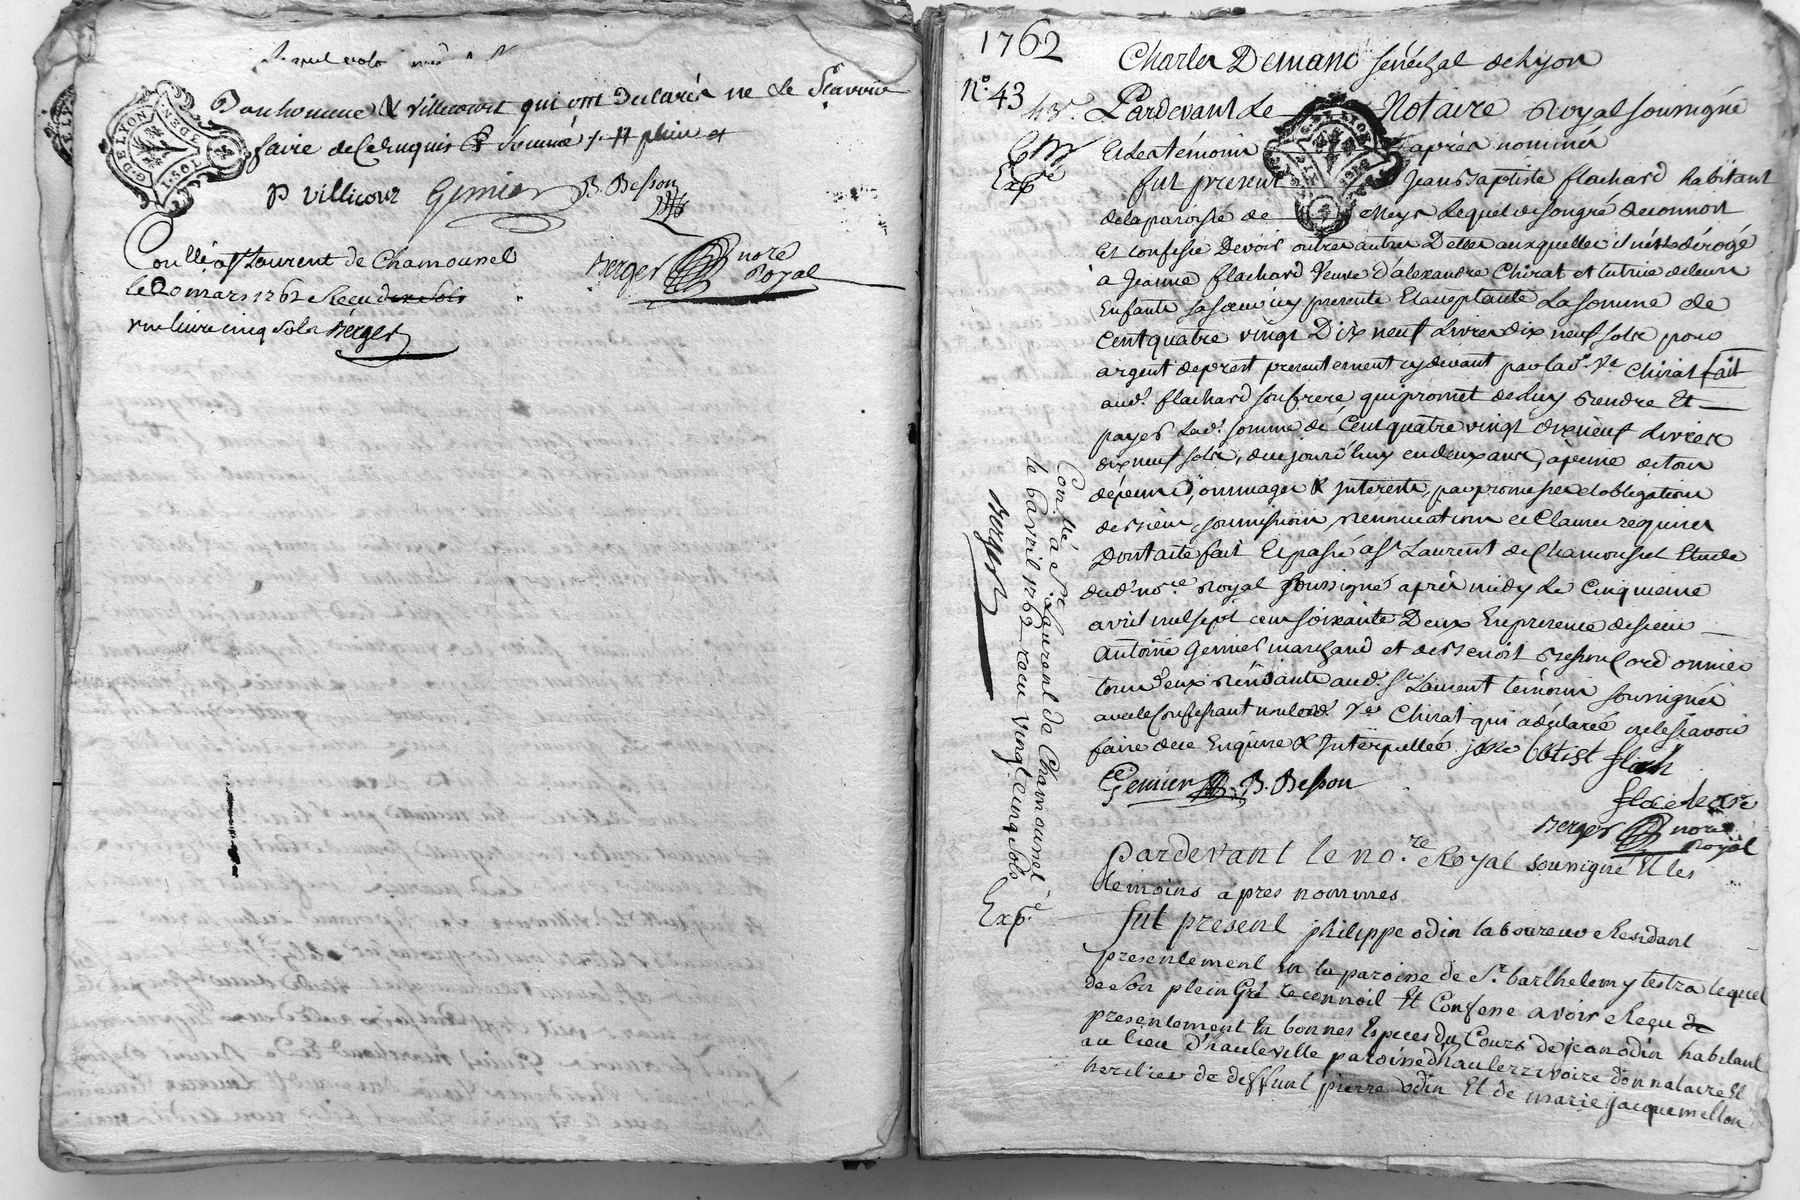 Bonhomme & villicourt qui ont declarés ne le sçavoir
faire de ce enquis & sommé
P villicour Genier B. Besson
Berger nore Royal
Conllé a St Laurent de Chamousset
le 20 mars 1762 Receu dix sols
une livre cinq sols Berger
G. DE LYON
1. SOL
DEN
1762
Charles Demanc sénéchal de Lyon
N.º 43
43.e Pardevant Le Notaire Royal soussigné
Et les témoins après nommés
Exp.é
fut présent Jean Baptiste flachard habitant
de la paroisse de Meys lequel de son gré reconnoit
Et confesse Devoir outre autres Dettes auxquelles il n'est dérogé
a Jeanne flachard Veuve d'alexandre Chirat et tutrice de leurs
Enfants sa sœur icy presente Et acceptante La somme de
Cent quatre vingt Dix neuf Livres dix neuf sols pour
argent de prest presentement cy devant par lad.e V.e Chirat fait
aud. flachard son frere qui promet de luy rendre Et
payer Lad. somme de Cent quatre vingt dix neuf Livres
dix neuf sols, de ce jourd'huy en deux ans, a peine de tous
dépens Dommages & Interests, par promesses et obligation
de biens, soumissions renonciations et Clauses requises
Dont acte fait Et passé a St Laurent de Chamousset Etude
dud. no.re royal soussigné après midy Le Cinquieme
avril mil sept cent soixante Deux En presence de sieur
Antoine Genier marchand et de Benoit Besson Cordonnier
tous deux résidants aud. St Laurent témoins soussignés
avec le Confessant non lad. V.e Chirat qui a déclarée ne le sçavoir
faire de ce Enquise & Interpellée. jan batist flach
Genier B. Besson
flachard
Berger nore Royal
Conllé a St. Laurent de Chamousset
le 6 avril 1762 receu vingt cinq sols
Berger
pardevant le no.re Royal soussigné Et les
témoins apres nommés
Exp.é
fut present philippe odin laboureur Residant
presentement en la paroisse de St. barthelemy lestra lequel
de son plein Gré reconnoit Et Confesse avoir Reçu de
presentement En bonnes Especes du Cours de jean odin habitant
au lieu d'hauteville paroisse d'hauterrivoire donnataire Et
heritier de deffunt pierre odin Et de marie jacquemetton